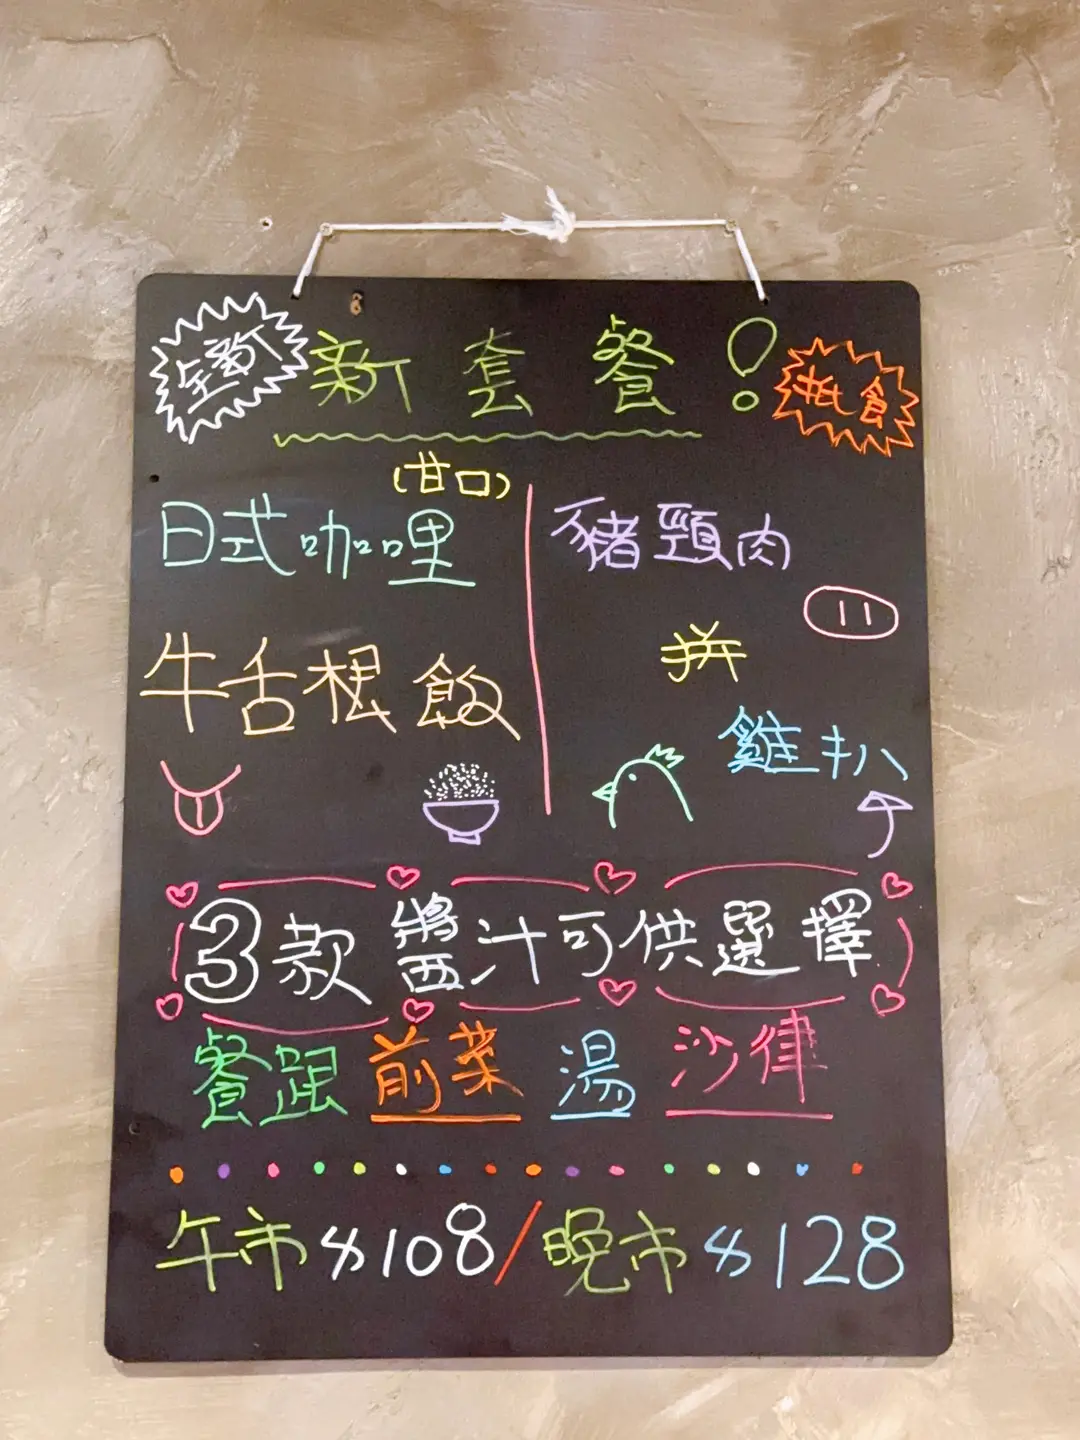 全新
新套餐!
抵食
(甘口)
日式咖哩
牛舌根飯
豬頸肉
拼
雞扒
3款醬汁可供選擇
餐跟 前菜 湯 沙律
午市$108/晚市$128